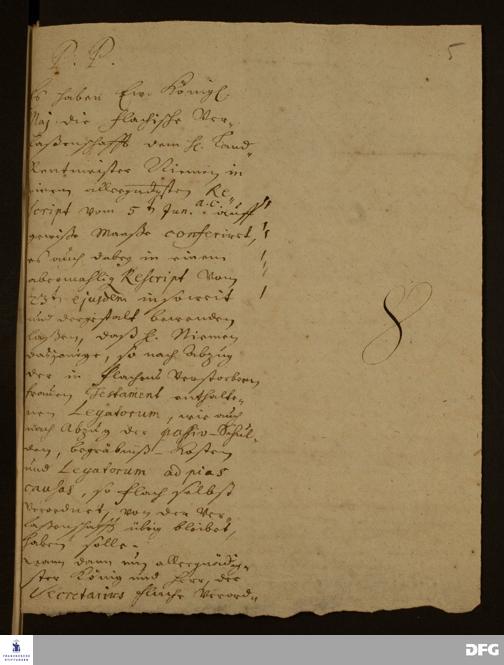 5
P. P.
Es haben Ew. Königl.
Maj. die Flachische Ver-
laßenschafft dem H. Land-
Rentmeister Niemen in
einem allergnädigsten Re-
script vom 5ten Jun. a. c. auff
gewiße Maaße conferiret,
es auch dabey in einem
abermahlig Rescript vom
23ten ejusdem in soweit
und dergestalt bewenden
laßen, daß H. Niemen
dasjenige, so nach Abzug
der in Flachens verstorbenen
Frauen Testament enthalte-
nen Legatorum, wie auch
nach Abzug der passiv-Schul-
den, begräbniß-Kosten
und Legatorum ad pias
causas, so Flach selbst
verordnet, von der Ver-
laßenschafft übrig bleibet,
haben solle.
Wann dann nun allergnädig-
ster König und Herr, der
Secretarius verord-
8
FRANCKESCHE
STIFTUNGEN
DFG